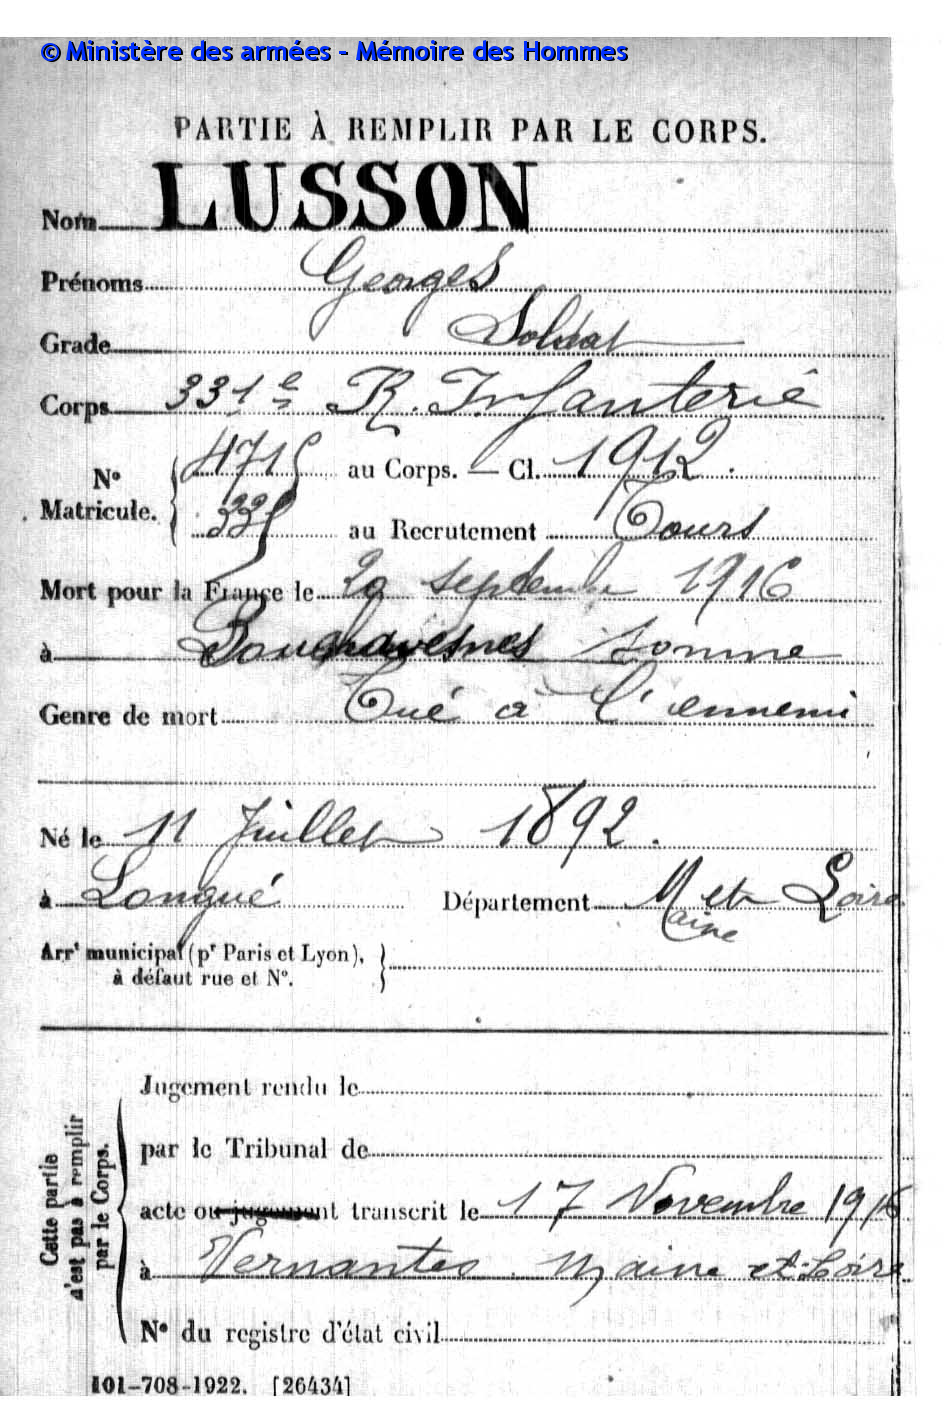 © Ministère des armées - Mémoire des Hommes
PARTIE À REMPLIR PAR LE CORPS.
Nom LUSSON
Prénoms Georges
Grade Soldat
Corps 331e R. Infanterie
N° Matricule. 4715 au Corps. — Cl. 1912.
335 au Recrutement Tours
Mort pour la France le 20 septembre 1916
à Bouchavesnes Somme
Genre de mort Tué à l'ennemi
Né le 11 Juillet 1892.
à Longué Département Maine et Loire
Arrt municipal (pr Paris et Lyon),
à défaut rue et N°.
Cette partie n'est pas à remplir par le Corps.
Jugement rendu le
par le Tribunal de
acte ou jugement transcrit le 17 Novembre 1916
à Vernantes. Maine et Loire
N° du registre d'état civil
101-708-1922. [26434]